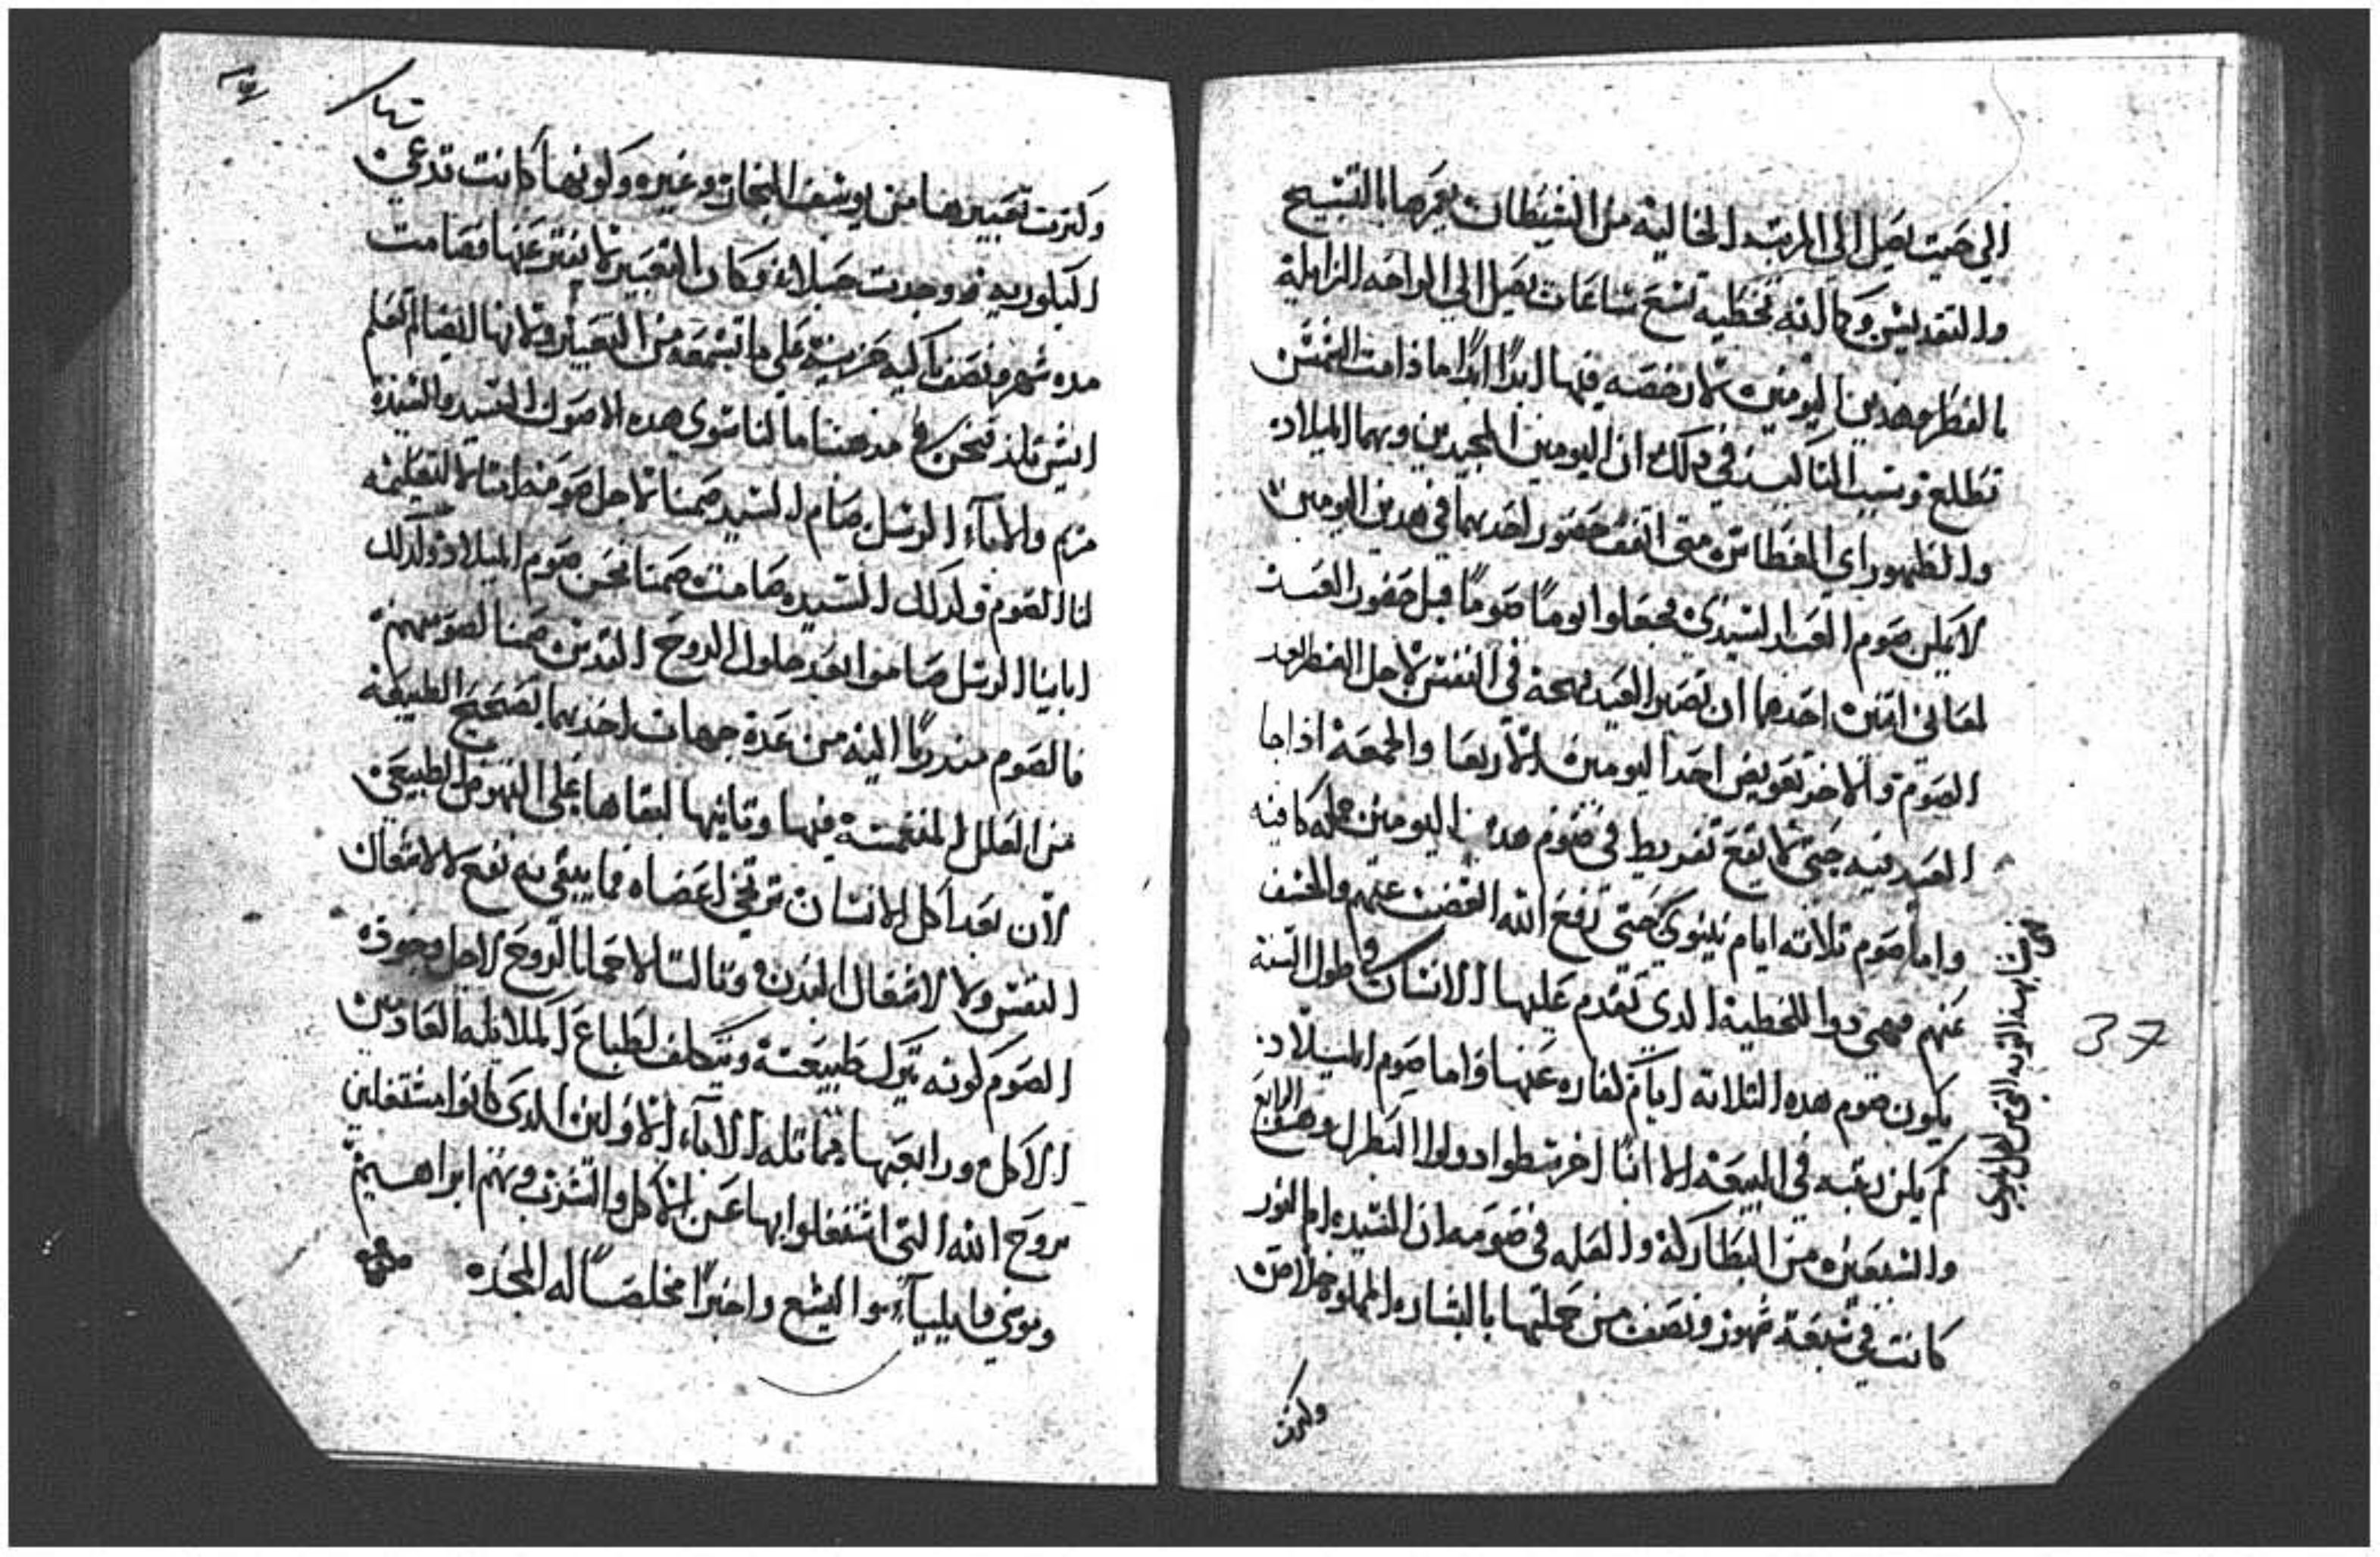 الي حيت يصل الى المرتبه الخاليه من الشيطان يعمرها بالتسبيح
والتقديس وكما انه تخطيه تسع ساعات يصل الى الراحه الزايلة
بالفطر وهدين اليومين لا رخصه فيها ابدًا ابدًا ما دامت الشمس
تطلع وسبب التاكيد في دلك ان اليومين المجيدين وبهما الميلاد
والظهور اي الغطاس متى اتفق حضور احدهما في هدين اليومين
لا يمكن صوم العيد السيدي يجعلوا يومًا صومًا قبل حضور العيد
لمعاني اتنين احدهما ان تصير العيد بهجة في النفس لاجل الفطر بعد
الصوم والاخر تعويض احد اليومين الاربعا والجمعة اذا جا
العيد فيه حتى لا يقع تفريط في صوم هدين اليومين جملة كافيه
واما صوم تلاته ايام نينوي حتى رفع الله الغضب عنهم والخسف
عنهم فهي دوا للخطية الدي تقدم عليها الانسان في طول السنة
يكون صوم هده التلاته ايام كفاره عنها واما صوم الميلاد
لم يكن رتبه في البيعة الا انبا اخرسطوادولوا البطرك وهو الرابع
والستين من البطاركة والعله في صومه ان السيده ام النور
كانت في سبعة شهور ونصف من حملها بالبشاره المملوه خلاص
وكترت
من بهذا التوبه التي من اهل نينوى
37
وكترت تعييرها من يوسف النجار وغيره وكونها كانت تدعى
البكوريه ووجدت حبلاء وكان التعيير لا يفتر عنها فصامت
مده شهر ونصف باكيه حزينة على ما تسمعه من التعيير ولانها ايضا لم تعلم
ايش تلد فنحن في مدهبنا ما لنا سوى هده الاصول السيد والسيدة
مريم والاباء الرسل صام السيد صمنا لاجل صومه امتثالا لتعليمه
لنا الصوم وكدلك السيده صامت صمنا نحن صوم الميلاد وكدلك
ابايا الرسل صاموا بعد حلول الروح القدس صمنا لصومهم
فالصوم مندوبًا اليه من عدة جهات احدهما لتصحيح الطبيعة
من العلل المنغمسة فيها وتانيها لبقاها على النهوض الطبيعي
لان بعد اكل الانسان ترتخي اعضاه فما يبقى به نفع لا لافعال
النفس ولا لافعال البدن وتالتا لاحمانا الروح لاجل وجوده
الصوم كونه يترك طبيعته ويتكلف لطباع الملايكه العادمين
الاكل ورابعها مماتله الاباء الاولين الدي كانوا مشتغلين
بروح الله التي اشتغلوا بها عن الاكل والشرب ومنهم ابراهيم
وموسى وايلياء واليشع واخيرًا مخلصا له المجد